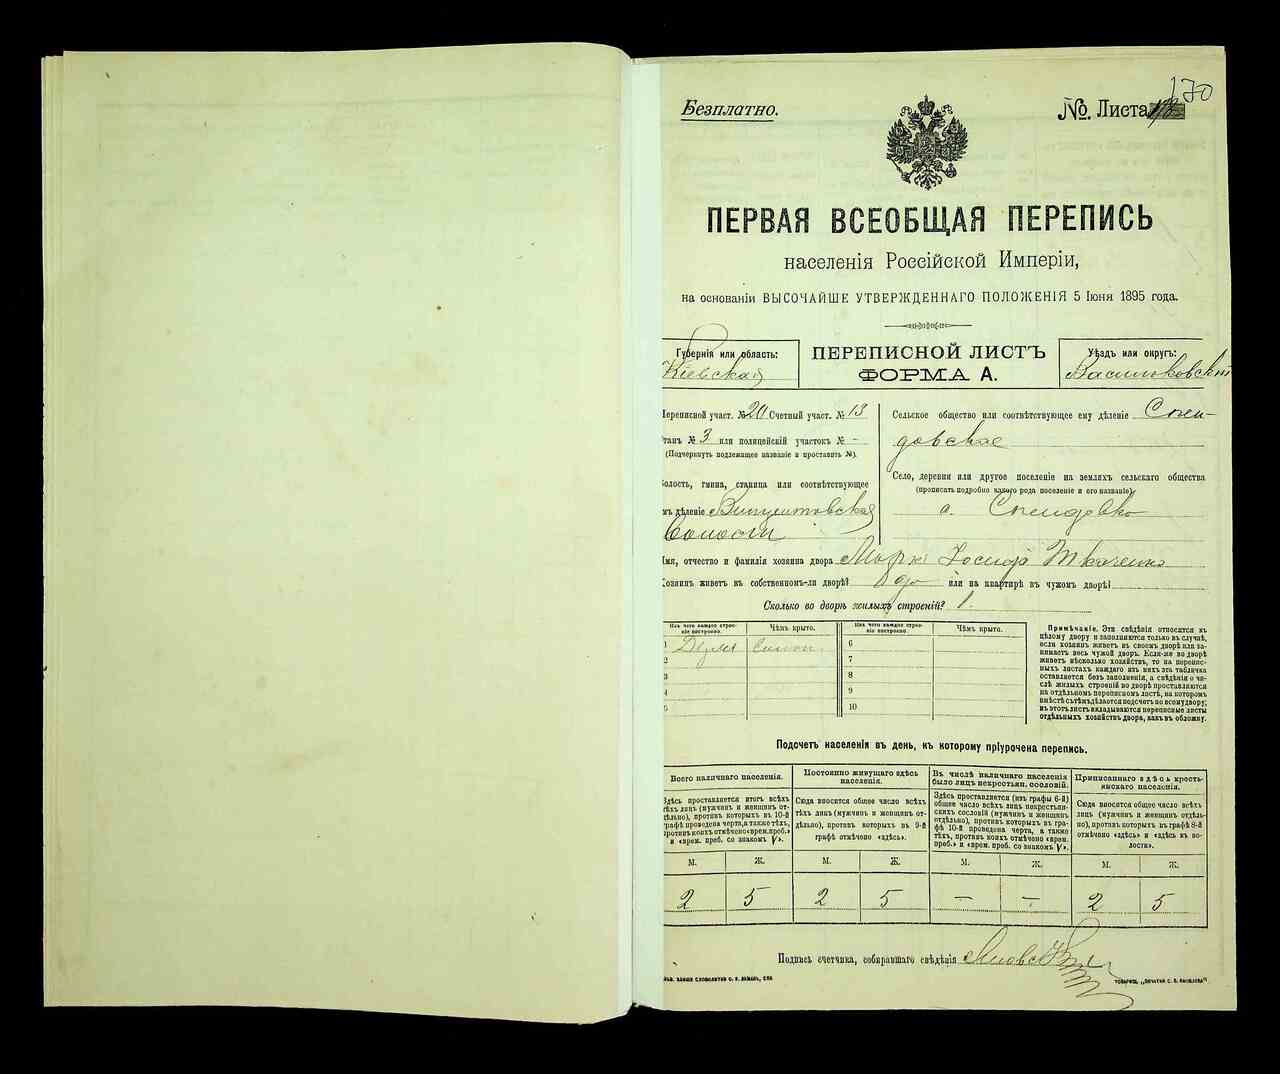 Безплатно.
№ Листа 170
ПЕРВАЯ ВСЕОБЩАЯ ПЕРЕПИСЬ
населенія Россійской Имперіи,
на основаніи ВЫСОЧАЙШЕ УТВЕРЖДЕННАГО ПОЛОЖЕНІЯ 5 Іюня 1895 года.
Губернія или область:
Кіевская
ПЕРЕПИСНОЙ ЛИСТЪ
ФОРМА А.
Уѣздъ или округъ:
Васильковскій
Переписной участ. № 20 Счетный участ. № 13
Станъ № 3 или полицейскій участокъ № -
(Подчеркнуть подлежащее названіе и проставить №).
Волость, гмина, станица или соотвѣтствующее
имъ дѣленіе
Волости
Сельское общество или соотвѣтствующее ему дѣленіе
довское
Село, деревня или другое поселеніе на земляхъ сельскаго общества
(прописать подробно какого рода поселеніе и его названіе)
с.
Имя, отчество и фамилія хозяина двора Марко Іосифа Ткаченко
Хозяинъ живетъ въ собственномъ-ли дворѣ? да или на квартирѣ въ чужомъ дворѣ?
Сколько во дворѣ жилыхъ строеній? 1.
Изъ чего каждое строеніе построено.
Чѣмъ крыто.
Изъ чего каждое строеніе построено.
Чѣмъ крыто.
1
2
3
4
5
6
7
8
9
10
Примѣчаніе. Эти свѣдѣнія относятся къ
цѣлому двору и заполняются только въ случаѣ,
если хозяинъ живетъ въ своемъ дворѣ или занимаетъ
весь чужой дворъ. Если-же во дворѣ
живетъ нѣсколько хозяйствъ, то на переписныхъ
листахъ каждаго изъ нихъ эта табличка
оставляется безъ заполненія, а свѣдѣнія о числѣ
жилыхъ строеній во дворѣ проставляются
на отдѣльномъ переписномъ листѣ, на которомъ
вмѣстѣ съ тѣмъ дѣлается подсчетъ по всему двору;
въ этотъ листъ вкладываются переписные листы
отдѣльныхъ хозяйствъ двора, какъ въ обложку.
Подсчетъ населенія въ день, къ которому пріурочена перепись.
Всего наличнаго населенія.
Здѣсь проставляется итогъ всѣхъ
тѣхъ лицъ (мужчинъ и женщинъ отдѣльно),
противъ которыхъ въ 10-й
графѣ проведена черта, а также тѣхъ,
противъ коихъ отмѣчено «врем. преб.»
и «врем. преб. со знакомъ V».
Постоянно живущаго здѣсь
населенія.
Сюда вносится общее число всѣхъ
тѣхъ лицъ (мужчинъ и женщинъ отдѣльно),
противъ которыхъ въ 9-й
графѣ отмѣчено «здѣсь».
Въ числѣ наличнаго населенія
было лицъ некрестьян. сословій.
Здѣсь проставляется (изъ графы 6-й)
общее число всѣхъ лицъ некрестьянскихъ
сословій (мужчинъ и женщинъ
отдѣльно), противъ которыхъ въ графѣ
10-й проведена черта, а также
тѣхъ, противъ коихъ отмѣчено «врем.
преб.» и «врем. преб. со знакомъ V».
Приписаннаго здѣсь крестьянскаго
населенія.
Сюда вносится общее число всѣхъ
лицъ (мужчинъ и женщинъ отдѣльно),
противъ которыхъ въ графѣ 8-й
отмѣчено «здѣсь» и «здѣсь въ волости».
М. Ж. М. Ж. М. Ж. М. Ж.
2 5 2 5 — — 2 5
Подпись счетчика, собиравшаго свѣдѣнія